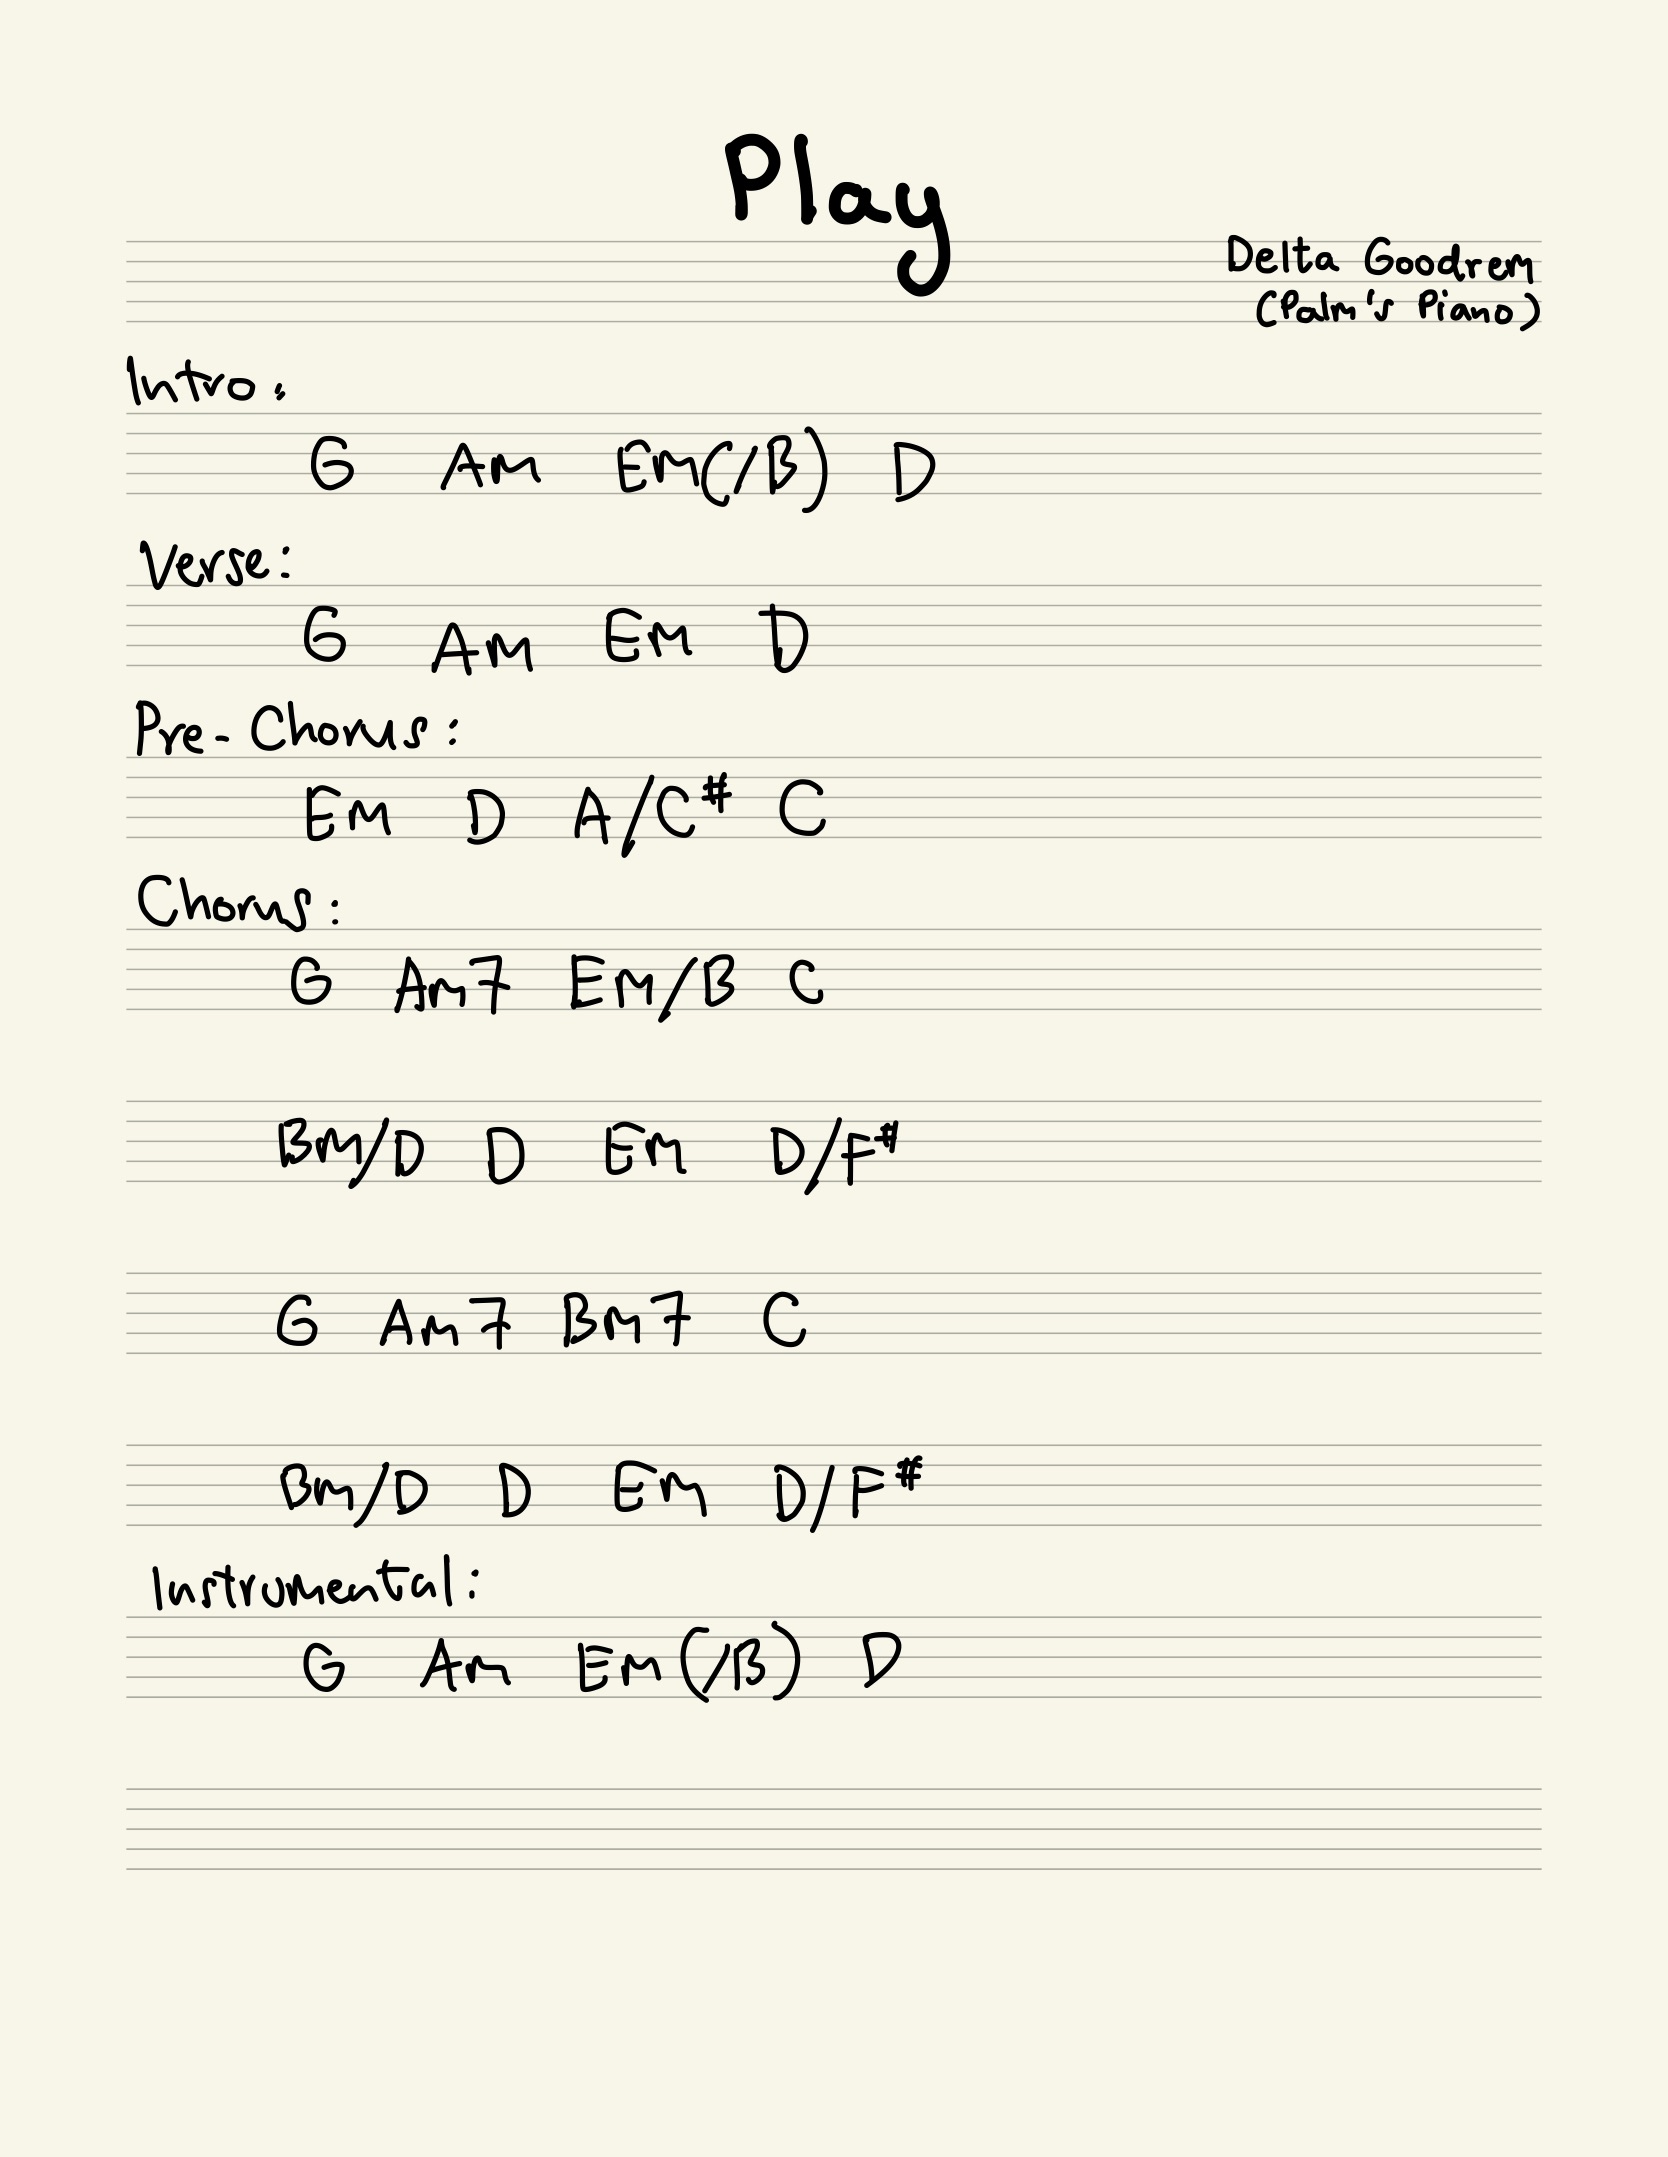 Play
Delta Goodrem
(Palm's Piano)
Intro:
G Am Em(/B) D
Verse:
G Am Em D
Pre-Chorus:
Em D A/C# C
Chorus:
G Am7 Em/B C
Bm/D D Em D/F#
G Am7 Bm7 C
Bm/D D Em D/F#
Instrumental:
G Am Em(/B) D